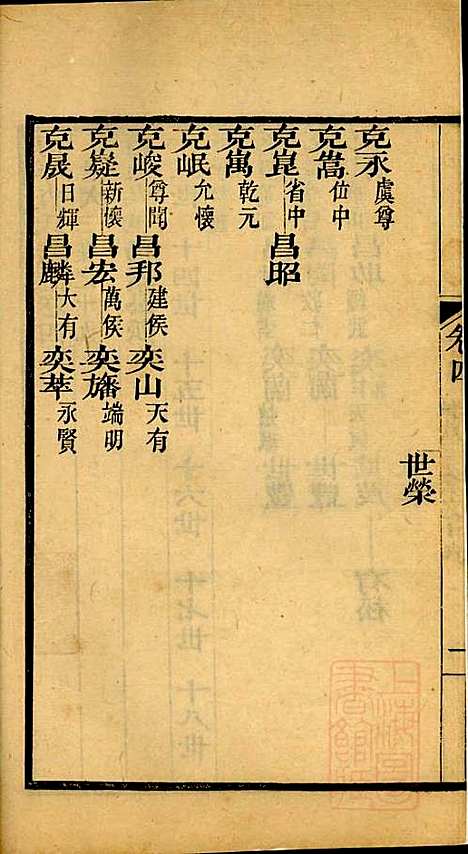 世榮
克永虞尊
克嵩位中
克崑省中 昌昭
克嵩乾元
克岷允懷
克峻尊聞 昌邦建侯 奕山天有
克嶷新懷 昌宏萬侯 奕旛端明
克晟日輝 昌麟大有 奕萃永賢
卷四